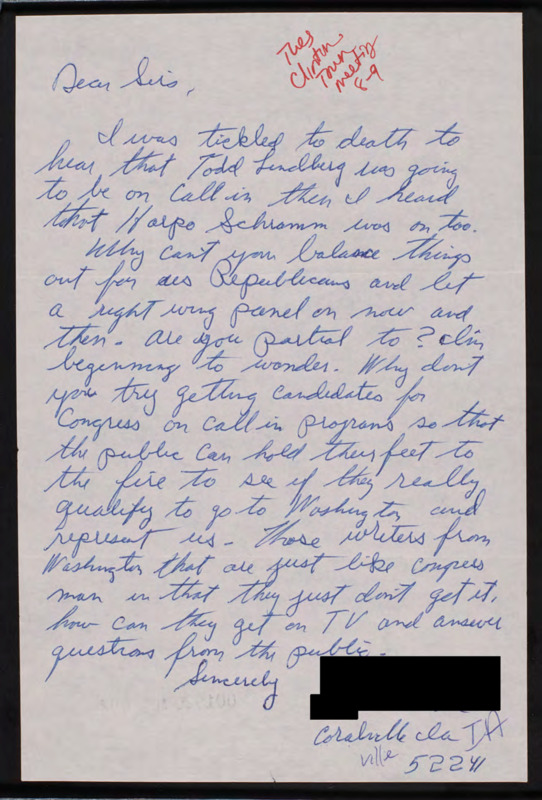 Tues
Clinton
Town
meeting
8-9
Dear Sirs,
I was tickled to death to
hear that Todd Lindberg was going
to be on Call in then I heard
that Harpo Schramm was on too.
Why can't you balance things
out for us Republicans and let
a right wing panel on now and
then - are you partial to? I'm
beginning to wonder. Why don't
you try getting candidates for
Congress on call in programs so that
the public can hold their feet to
the fire to see if they really
qualify to go to Washington and
represent us - Those writers from
Washington that are just like congress
man in that they just don't get it,
how can they get on TV and answer
questions from the public -
Sincerely
Coralville Ia IA
ville
52241